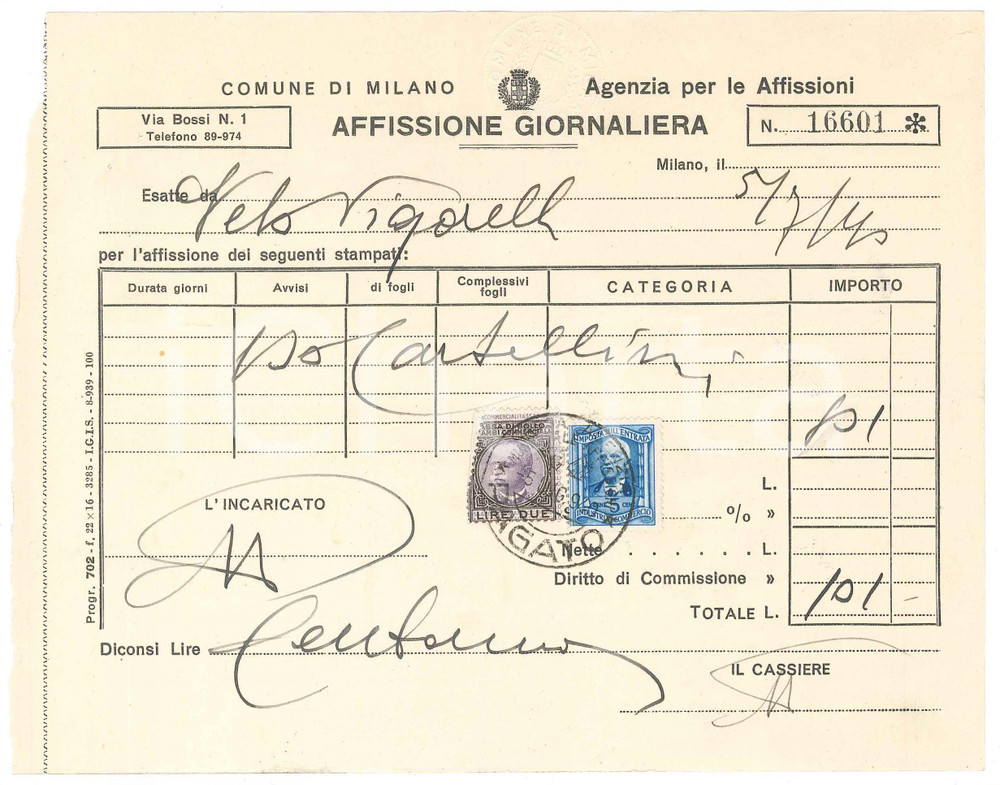 COMUNE DI MILANO Agenzia per le Affissioni
Via Bossi N. 1
Telefono 89-974
AFFISSIONE GIORNALIERA
N. 16601 *
Milano, il 5/7/40
Esatte da Velo Vigorelli
per l'affissione dei seguenti stampati:
Durata giorni Avvisi di fogli Complessivi fogli CATEGORIA IMPORTO
150 Cartellini
101
LIRE DUE
IMPOSTA SULL'ENTRATA
L.
% »
L'INCARICATO
Netto L.
Diritto di Commissione »
TOTALE L. 101 -
Diconsi Lire Centouno
IL CASSIERE
Progr. 702 - f. 22 × 16 - 3285 - I.G.I.S. - 8-939 - 100